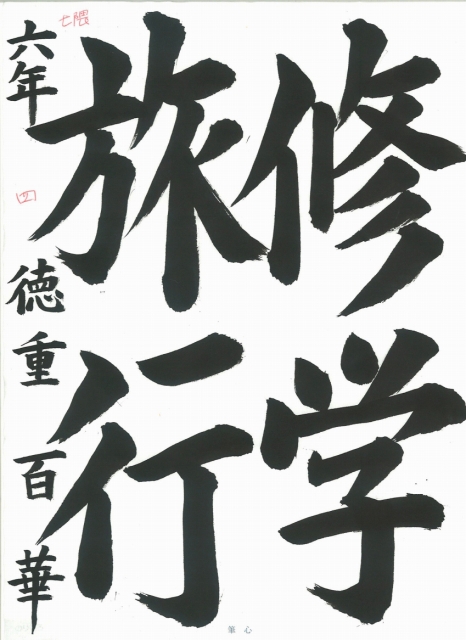 修学
旅行
七隈
六年
四
徳重百華
筆心